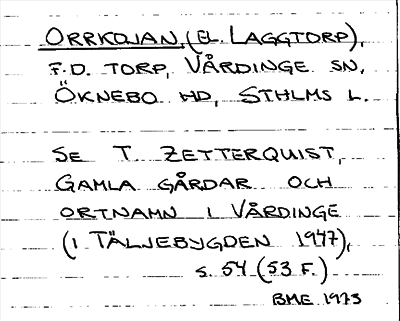 ORRKOJAN, (EL. LAGGTORP),
F.D. TORP, VÅRDINGE SN,
ÖKNEBO HD, STHLMS L.
SE T. ZETTERQUIST,
GAMLA GÅRDAR OCH
ORTNAMN I VÅRDINGE
(I TÄLJEBYGDEN 1947),
S. 54 (53 F.)
BME 1973